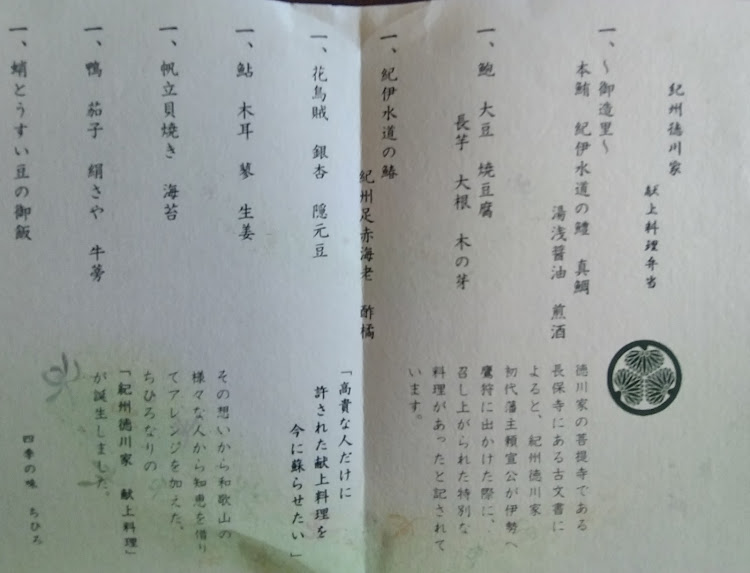 紀州徳川家
献上料理弁当
一、〜御造里〜
本鮪 紀伊水道の鱧 真鯛
湯浅醤油 煎酒
一、鮑 大豆 焼豆腐
長芋 大根 木の芽
一、紀伊水道の鰆
紀州足赤海老 酢橘
一、花烏賊 銀杏 隠元豆
一、鮎 木耳 蓼 生姜
一、帆立貝焼き 海苔
一、鴨 茄子 絹さや 牛蒡
一、蛸とうすい豆の御飯
徳川家の菩提寺である
長保寺にある古文書に
よると、紀州徳川家
初代藩主頼宣公が伊勢へ
鷹狩に出かけた際に、
召し上がられた特別な
料理があったと記されて
います。
「高貴な人だけに
許された献上料理を
今に蘇らせたい」
その想いから和歌山の
様々な人から知恵を借り
てアレンジを加えた、
ちひろなりの
「紀州徳川家 献上料理」
が誕生しました。
四季の味 ちひろ